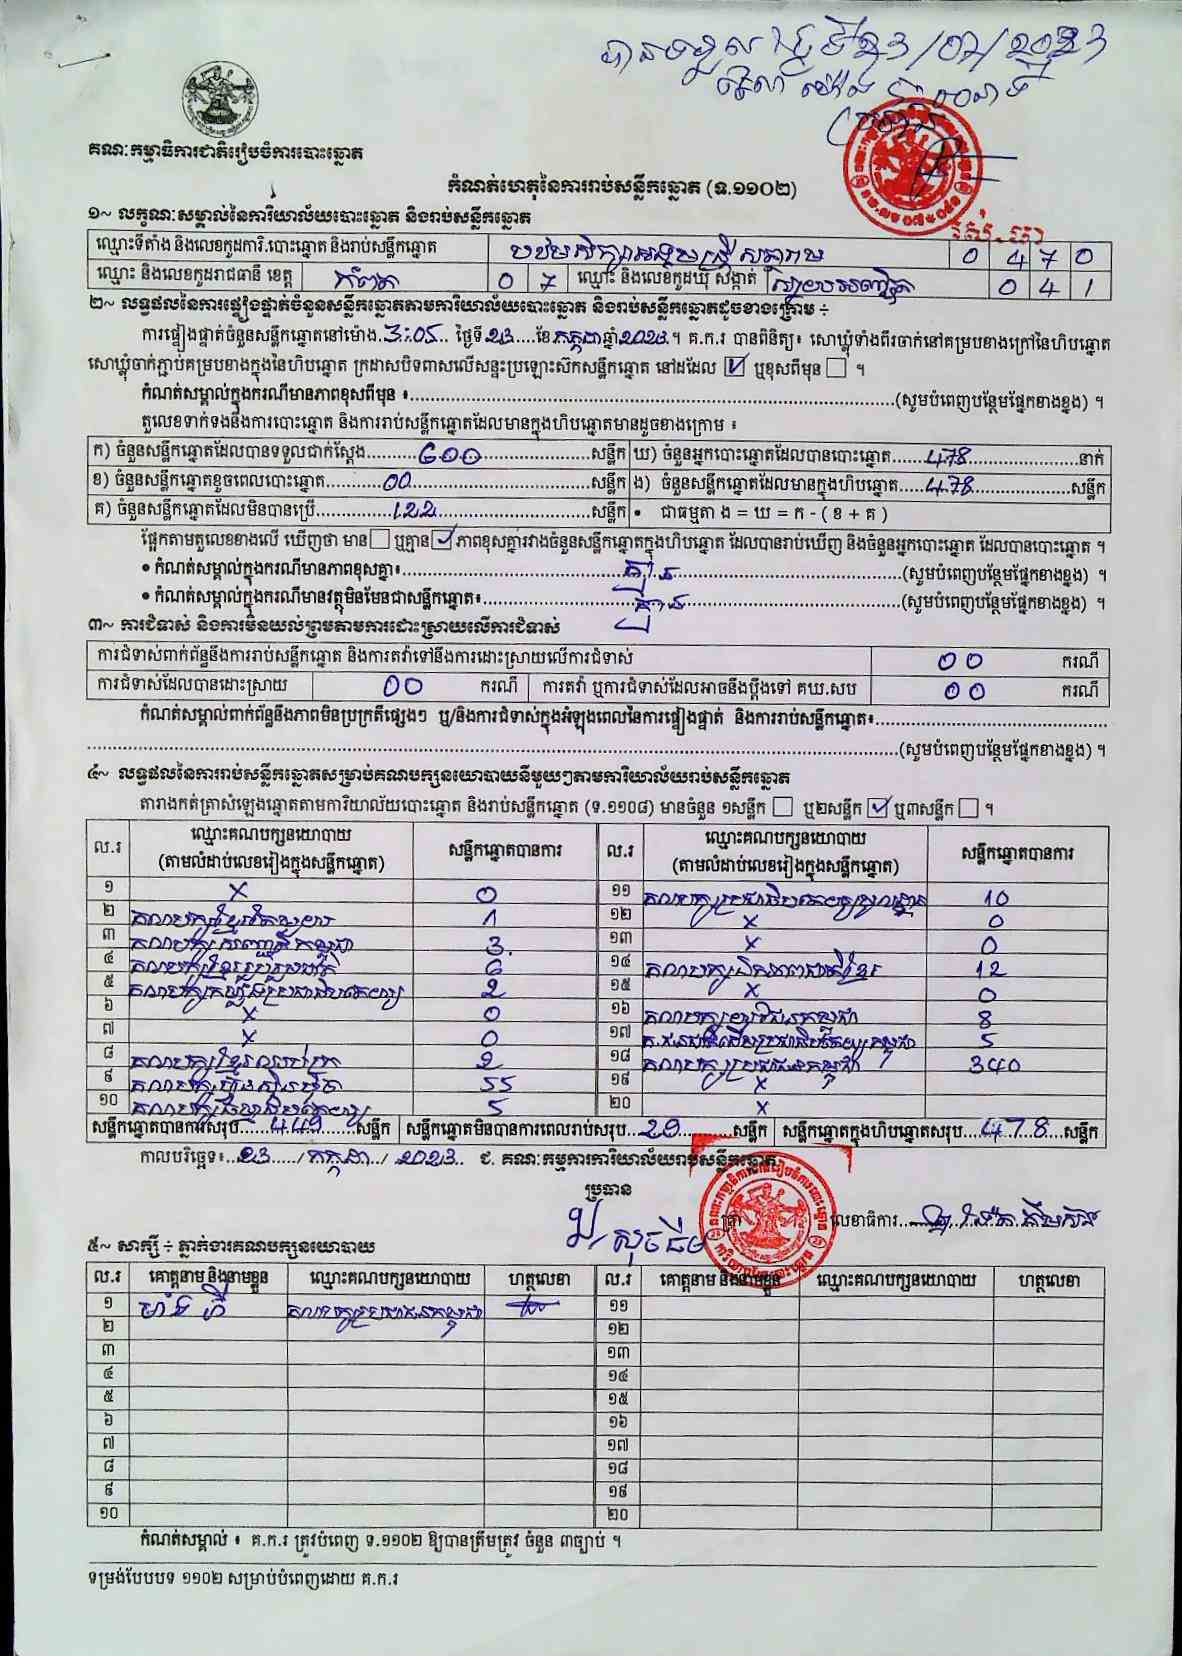 បានទទួល ថ្ងៃទី23/07/2023
គណៈកម្មាធិការជាតិរៀបចំការបោះឆ្នោត
កំណត់ហេតុនៃការរាប់សន្លឹកឆ្នោត (ទ.១១០២)
១~ លក្ខណៈសម្គាល់នៃការិយាល័យបោះឆ្នោត និងរាប់សន្លឹកឆ្នោត
ឈ្មោះទីតាំង និងលេខកូដការិ.បោះឆ្នោត និងរាប់សន្លឹកឆ្នោត 0 4 7 0
ឈ្មោះ និងលេខកូដរាជធានី ខេត្ត កំពត 0 7 ឈ្មោះ និងលេខកូដឃុំ សង្កាត់ 0 4 1
២~ លទ្ធផលនៃការផ្ទៀងផ្ទាត់ចំនួនសន្លឹកឆ្នោតតាមការិយាល័យបោះឆ្នោត និងរាប់សន្លឹកឆ្នោតដូចខាងក្រោម ÷
ការផ្ទៀងផ្ទាត់ចំនួនសន្លឹកឆ្នោតនៅម៉ោង 3:05 ថ្ងៃទី 23 ខែ កក្កដា ឆ្នាំ 2023 ។ គ.ក.រ បានពិនិត្យ៖ សោឃ្លុំទាំងពីរចាក់នៅគម្របខាងក្រៅនៃហិបឆ្នោត
សោឃ្លុំចាក់ភ្ជាប់គម្របខាងក្នុងនៃហិបឆ្នោត ក្រដាសបិទពាសលើសន្ទះប្រឡោះស៊កសន្លឹកឆ្នោត នៅដដែល ☑ ឬខុសពីមុន ☐ ។
កំណត់សម្គាល់ក្នុងករណីមានភាពខុសពីមុន ៖ (សូមបំពេញបន្ថែមផ្នែកខាងខ្នង) ។
តួលេខទាក់ទងនឹងការបោះឆ្នោត និងការរាប់សន្លឹកឆ្នោតដែលមានក្នុងហិបឆ្នោតមានដូចខាងក្រោម ៖
ក) ចំនួនសន្លឹកឆ្នោតដែលបានទទួលជាក់ស្តែង 600 សន្លឹក ឃ) ចំនួនអ្នកបោះឆ្នោតដែលបានបោះឆ្នោត 478 នាក់
ខ) ចំនួនសន្លឹកឆ្នោតខូចពេលបោះឆ្នោត 00 សន្លឹក ង) ចំនួនសន្លឹកឆ្នោតដែលមានក្នុងហិបឆ្នោត 478 សន្លឹក
គ) ចំនួនសន្លឹកឆ្នោតដែលមិនបានប្រើ 122 សន្លឹក • ជាធម្មតា ង = ឃ = ក - ( ខ + គ )
ផ្អែកតាមតួលេខខាងលើ ឃើញថា មាន ☐ ឬគ្មាន ☑ ភាពខុសគ្នារវាងចំនួនសន្លឹកឆ្នោតក្នុងហិបឆ្នោត ដែលបានរាប់ឃើញ និងចំនួនអ្នកបោះឆ្នោត ដែលបានបោះឆ្នោត ។
• កំណត់សម្គាល់ក្នុងករណីមានភាពខុសគ្នា៖ គ្មាន (សូមបំពេញបន្ថែមផ្នែកខាងខ្នង) ។
• កំណត់សម្គាល់ក្នុងករណីមានវត្ថុមិនមែនជាសន្លឹកឆ្នោត៖ គ្មាន (សូមបំពេញបន្ថែមផ្នែកខាងខ្នង) ។
៣~ ការជំទាស់ និងការមិនយល់ព្រមតាមការដោះស្រាយលើការជំទាស់
ការជំទាស់ពាក់ព័ន្ធនឹងការរាប់សន្លឹកឆ្នោត និងការតវ៉ាទៅនឹងការដោះស្រាយលើការជំទាស់ 00 ករណី
ការជំទាស់ដែលបានដោះស្រាយ 00 ករណី ការតវ៉ា ឬការជំទាស់ដែលអាចនឹងប្តឹងទៅ គឃ.សប 00 ករណី
កំណត់សម្គាល់ពាក់ព័ន្ធនឹងភាពមិនប្រក្រតីផ្សេងៗ ឬ/និងការជំទាស់ក្នុងអំឡុងពេលនៃការផ្ទៀងផ្ទាត់ និងការរាប់សន្លឹកឆ្នោត៖
(សូមបំពេញបន្ថែមផ្នែកខាងខ្នង) ។
៤~ លទ្ធផលនៃការរាប់សន្លឹកឆ្នោតសម្រាប់គណបក្សនយោបាយនីមួយៗតាមការិយាល័យរាប់សន្លឹកឆ្នោត
តារាងកត់ត្រាសំឡេងឆ្នោតតាមការិយាល័យបោះឆ្នោត និងរាប់សន្លឹកឆ្នោត (ទ.១១០៨) មានចំនួន ១សន្លឹក ☐ ឬ២សន្លឹក ☑ ឬ៣សន្លឹក ☐ ។
ល.រ ឈ្មោះគណបក្សនយោបាយ សន្លឹកឆ្នោតបានការ ល.រ ឈ្មោះគណបក្សនយោបាយ សន្លឹកឆ្នោតបានការ
(តាមលំដាប់លេខរៀងក្នុងសន្លឹកឆ្នោត) (តាមលំដាប់លេខរៀងក្នុងសន្លឹកឆ្នោត)
១ x 0 ១១ 10
២ 1 ១២ x 0
៣ 3 ១៣ x 0
៤ 6 ១៤ 12
៥ 2 ១៥ x 0
៦ x 0 ១៦ 8
៧ x 0 ១៧ 5
៨ 2 ១៨ គណបក្សប្រជាជនកម្ពុជា 340
៩ 55 ១៩ x
១០ 5 ២០ x
សន្លឹកឆ្នោតបានការសរុប 449 សន្លឹក សន្លឹកឆ្នោតមិនបានការពេលរាប់សរុប 29 សន្លឹក សន្លឹកឆ្នោតក្នុងហិបឆ្នោតសរុប 478 សន្លឹក
កាលបរិច្ឆេទ៖ 23 / កក្កដា / 2023 ជ. គណៈកម្មការការិយាល័យរាប់សន្លឹកឆ្នោត
ប្រធាន
ត្រា លេខាធិការ
៥~ សាក្សី ÷ ភ្នាក់ងារគណបក្សនយោបាយ
ល.រ គោត្តនាម និងនាមខ្លួន ឈ្មោះគណបក្សនយោបាយ ហត្ថលេខា ល.រ គោត្តនាម និងនាមខ្លួន ឈ្មោះគណបក្សនយោបាយ ហត្ថលេខា
១ គណបក្សប្រជាជនកម្ពុជា ១១
២ ១២
៣ ១៣
៤ ១៤
៥ ១៥
៦ ១៦
៧ ១៧
៨ ១៨
៩ ១៩
១០ ២០
កំណត់សម្គាល់ ៖ គ.ក.រ ត្រូវបំពេញ ទ.១១០២ ឱ្យបានត្រឹមត្រូវ ចំនួន ៣ច្បាប់ ។
ទម្រង់បែបបទ ១១០២ សម្រាប់បំពេញដោយ គ.ក.រ